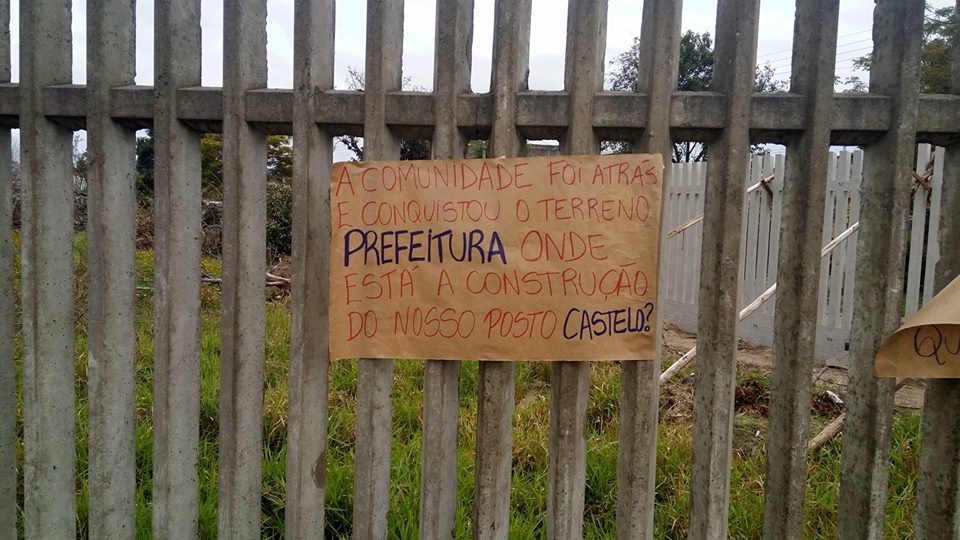 A COMUNIDADE FOI ATRÁS
E CONQUISTOU O TERRENO
PREFEITURA ONDE
ESTÁ A CONSTRUÇÃO
DO NOSSO POSTO CASTELO?
QU